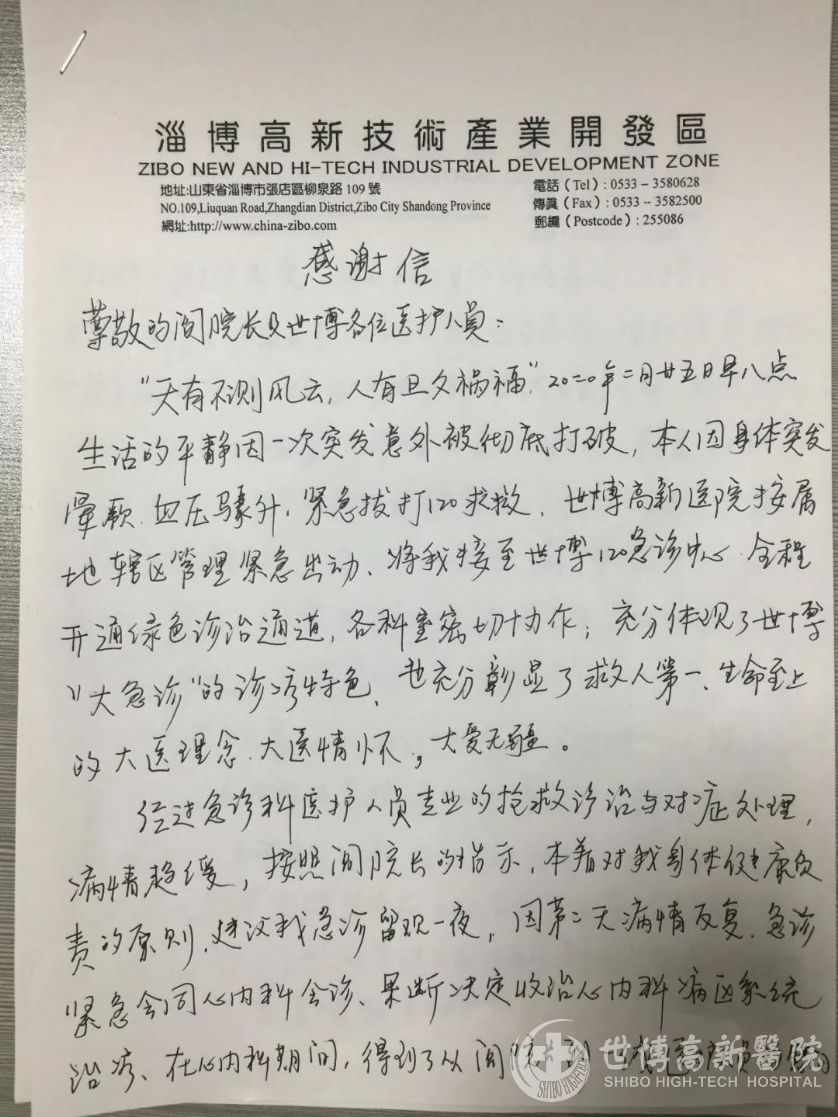 淄博高新技術產業開發區
ZIBO NEW AND HI-TECH INDUSTRIAL DEVELOPMENT ZONE
地址:山東省淄博市張店區柳泉路 109 號
電話(Tel):0533-3580628
NO.109,Liuquan Road,Zhangdian District,Zibo City Shandong Province
傳眞(Fax):0533-3582500
網址:http://www.china-zibo.com
郵編(Postcode):255086
感谢信
尊敬的闫院长及世博各位医护人员:
"天有不测风云,人有旦夕祸福"2020年二月廿五日早八点
生活的平静因一次突发意外被彻底打破,本人因身体突发
晕厥.血压骤升.紧急拔打120求救.世博高新医院按属
地辖区管理紧急出动、将我接至世博120急诊中心.全程
开通绿色诊治通道,各科室密切协作;充分体现了世博
"大急诊"的诊疗特色、也充分彰显了救人第一、生命至上
的大医理念.大医情怀,大爱无疆。
经过急诊科医护人员专业的抢救诊治与对症处理,
病情趋缓,按照闫院长的指示,本着对我身体健康负
责的原则.建议我急诊留观一夜,因第二天病情反复.急诊
紧急会同心内科会诊、果断决定收治心内科病区系统
治疗、在心内科期间,得到了以闫院长
世博高新醫院
SHIBO HIGH-TECH HOSPITAL